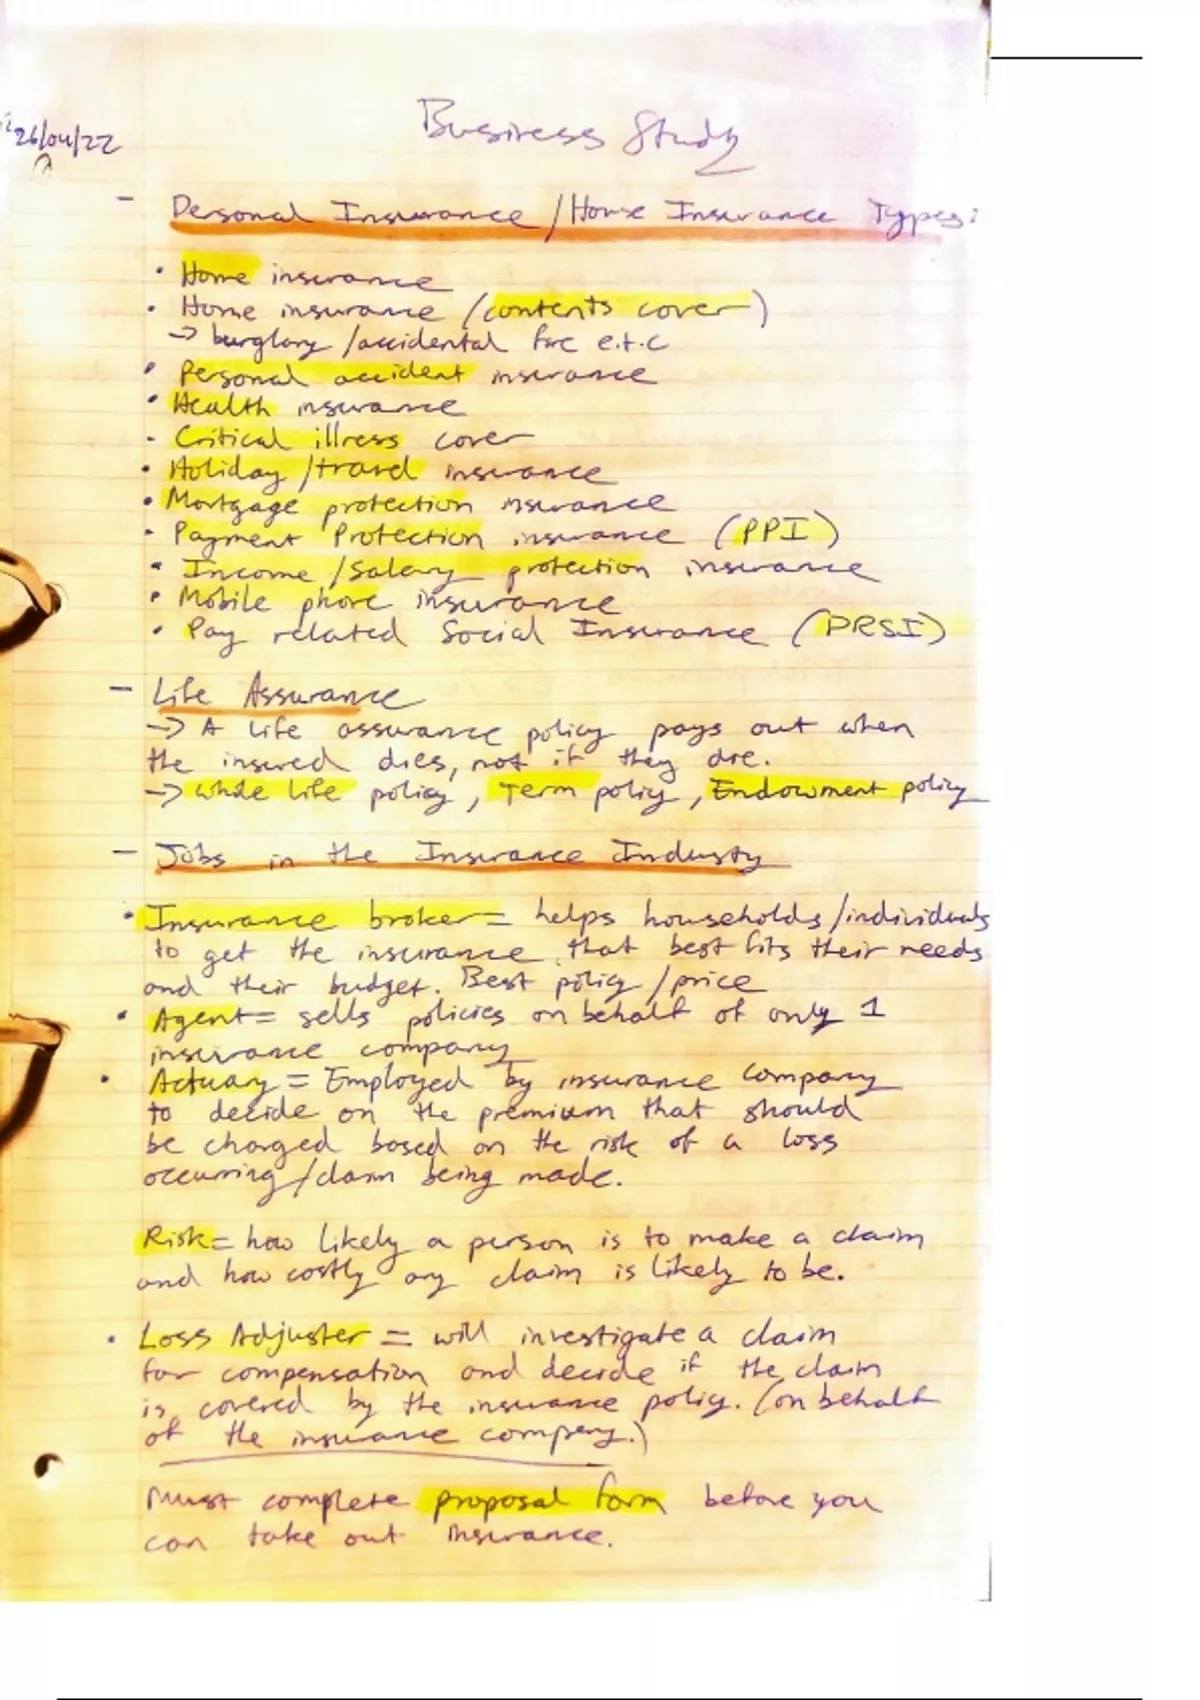 26/04/22
Business Study
- Personal Insurance / House Insurance Types:
• Home insurance
• Home insurance (contents cover)
→ burglary / accidental fire e.t.c
• Personal accident insurance
• Health insurance
• Critical illness cover
• Holiday / travel insurance
• Mortgage protection insurance
• Payment Protection insurance (PPI)
• Income / Salary protection insurance
• Mobile phone insurance
• Pay related Social Insurance (PRSI)
- Life Assurance
→ A life assurance policy pays out when
the insured dies, not if they die.
→ whole life policy, Term policy, Endowment policy
- Jobs in the Insurance Industy
• Insurance broker = helps households/individuals
to get the insurance that best fits their needs
and their budget. Best policy / price
• Agent = sells policies on behalf of only 1
insurance company
• Actuary = Employed by insurance company
to decide on the premium that should
be charged based on the risk of a loss
occurring / claim being made.
Risk = how likely a person is to make a claim
and how costly any claim is likely to be.
• Loss Adjuster = will investigate a claim
for compensation and decide if the claim
is covered by the insurance policy. (on behalf
of the insurance company.)
Must complete proposal form before you
can take out insurance.